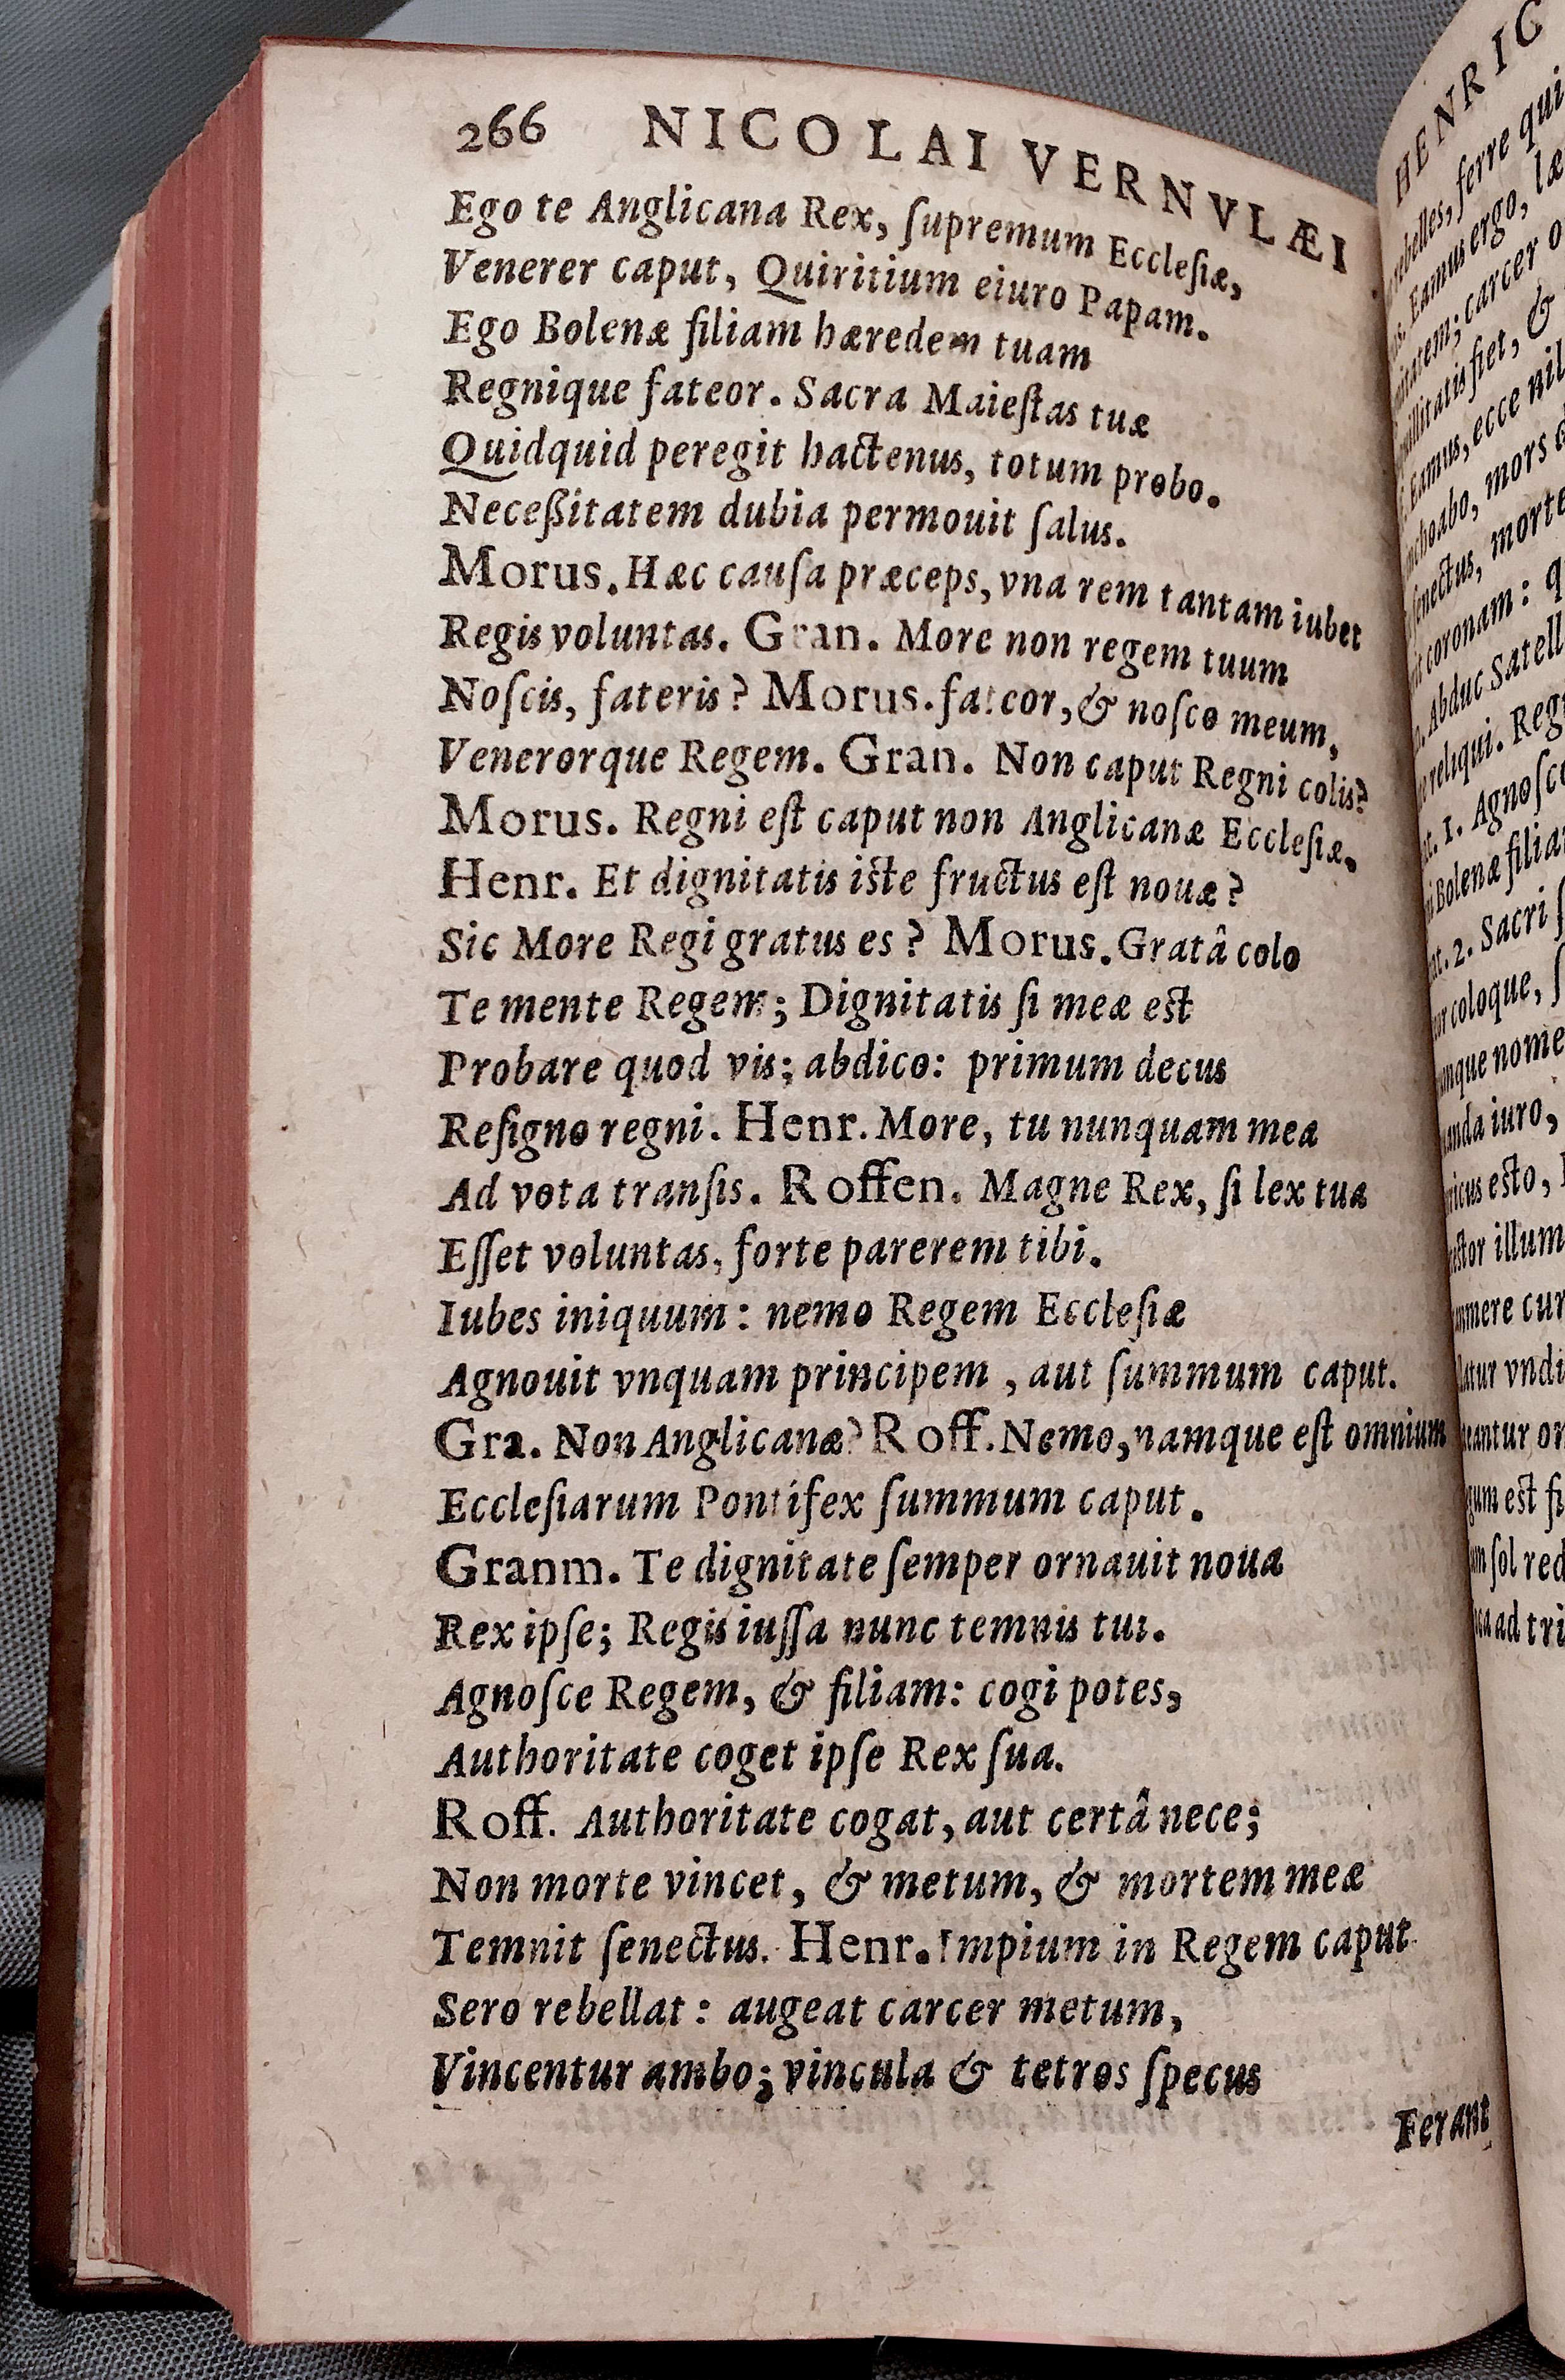 266 NICOLAI VERNVLÆI
Ego te Anglicana Rex, ſupremum Eccleſiæ,
Venerer caput, Quiritium eiuro Papam.
Ego Bolenæ filiam hæredem tuam
Regnique fateor. Sacra Maieſtas tuæ
Quidquid peregit hactenus, totum probo.
Neceßitatem dubia permouit ſalus.
Morus. Hæc cauſa præceps, vna rem tantam iubet
Regis voluntas. Gran. More non regem tuum
Noſcis, fateris? Morus. fateor, & noſco meum,
Venerorque Regem. Gran. Non caput Regni colis?
Morus. Regni eſt caput non Anglicanæ Eccleſiæ.
Henr. Et dignitatis iſte fructus eſt nouæ?
Sic More Regi gratus es? Morus. Gratâ colo
Te mente Regem; Dignitatis ſi meæ eſt
Probare quod vis; abdico: primum decus
Reſigno regni. Henr. More, tu nunquam mea
Ad vota tranſis. Roffen. Magne Rex, ſi lex tua
Eſſet voluntas, forte parerem tibi.
Iubes iniquum: nemo Regem Eccleſiæ
Agnouit vnquam principem, aut ſummum caput.
Gra. Non Anglicanæ? Roff. Nemo, namque eſt omnium
Eccleſiarum Pontifex ſummum caput.
Granm. Te dignitate ſemper ornauit noua
Rex ipſe; Regis iuſſa nunc temnis tui.
Agnoſce Regem, & filiam: cogi potes,
Authoritate coget ipſe Rex ſua.
Roff. Authoritate cogat, aut certâ nece;
Non morte vincet, & metum, & mortem meæ
Temnit ſenectus. Henr. Impium in Regem caput
Sero rebellat: augeat carcer metum,
Vincentur ambo; vincula & tetros ſpecus
Ferant
HENRIC
rebelles, ferre qui
Eamus ergo, læ
carcer o
fiet, &
Eamus, ecce nil
mors
ſenectus, morte
coronam: q
Abduc Satell
reliqui. Reg
1. Agnoſco
Bolenæ filia
2. Sacri
coloque,
nome
iuro,
eſto,
illum
cur
vndi
or
eſt
ſol red
ad tri